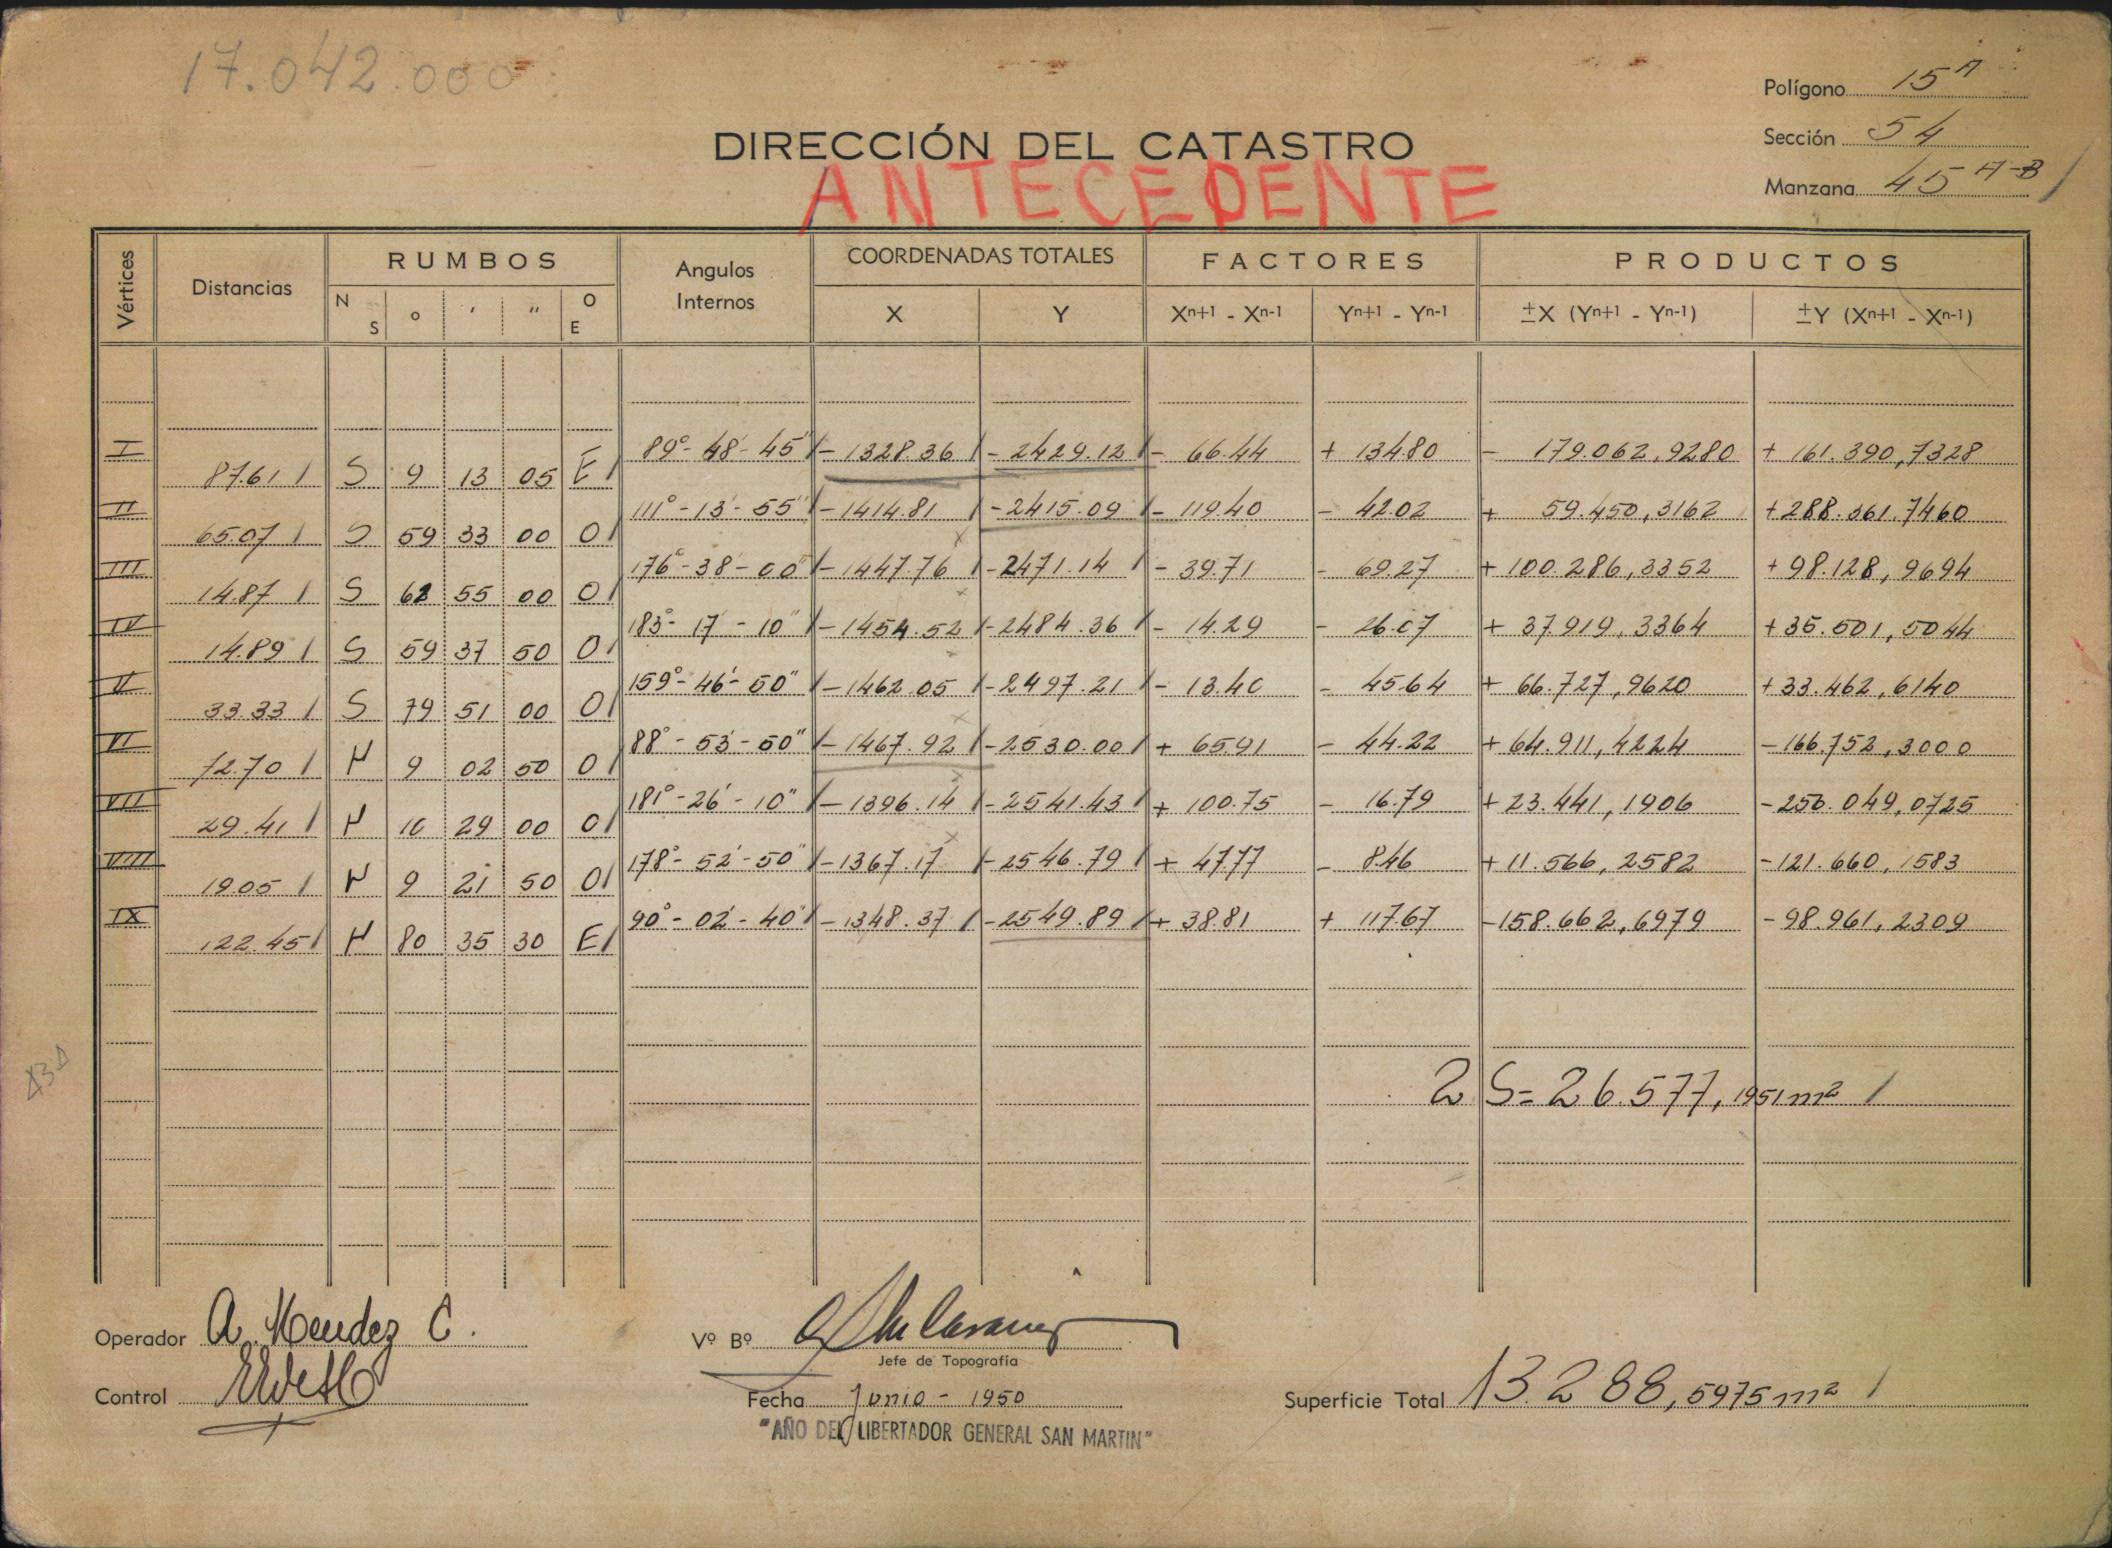 17.042.000
Polígono 15 A
Sección 54
Manzana 45 A-B /
DIRECCIÓN DEL CATASTRO
ANTECEDENTE
Vértices Distancias RUMBOS Angulos Internos COORDENADAS TOTALES FACTORES PRODUCTOS
N S ° ' " O E X Y Xn+1 - Xn-1 Yn+1 - Yn-1 ±X (Yn+1 - Yn-1) ±Y (Xn+1 - Xn-1)
I 89°-48'-45" / - 1328.36 / - 2429.12 / - 66.44 + 134.80 - 179.062,9280 + 161.390,7328
87.61 / S 9 13 05 E /
II 111°-13'-55" / - 1414.81 / - 2415.09 / - 119.40 - 42.02 + 59.450,3162 + 288.361.7460
65.07 / S 59 33 00 O /
III 176°-38-00" / - 1447.76 / - 2471.14 / - 39.71 - 69.27 + 100.286,3352 + 98.128,9694
14.87 / S 62 55 00 O /
IV 183°-17'-10" / - 1454.52 / - 2484.36 / - 14.29 - 26.07 + 37.919,3364 + 35.501,5044
14.89 / S 59 37 50 O /
V 159°-46'-50" / - 1462.05 / - 2497.21 / - 13.40 - 45.64 + 66.727,9620 + 33.462,6140
33.33 / S 79 51 00 O /
VI 88°-53'-50" / - 1467.92 / - 2530.00 / + 65.91 - 44.22 + 64.911,4224 - 166.752,3000
72.70 / N 9 02 50 O /
VII 181°-26'-10" / - 1396.14 / - 2541.43 / + 100.75 - 16.79 + 23.441,1906 - 256.049,0725
29.41 / N 10 29 00 O /
VIII 178°-52'-50" / - 1367.17 / - 2546.79 / + 47.77 - 8.46 + 11.566,2582 - 121.660,1583
19.05 / N 9 21 50 O /
IX 90°-02'-40" / - 1348.37 / - 2549.89 / + 38.81 + 117.67 - 158.662,6979 - 98.961,2309
122.45 / N 80 35 30 E /
2 S = 26.577,1951 m² /
Operador A. Mendez C.
Vº Bº
Jefe de Topografía
Control
Fecha Junio - 1950
Superficie Total 13.288,5975 m² /
"AÑO DEL LIBERTADOR GENERAL SAN MARTIN"